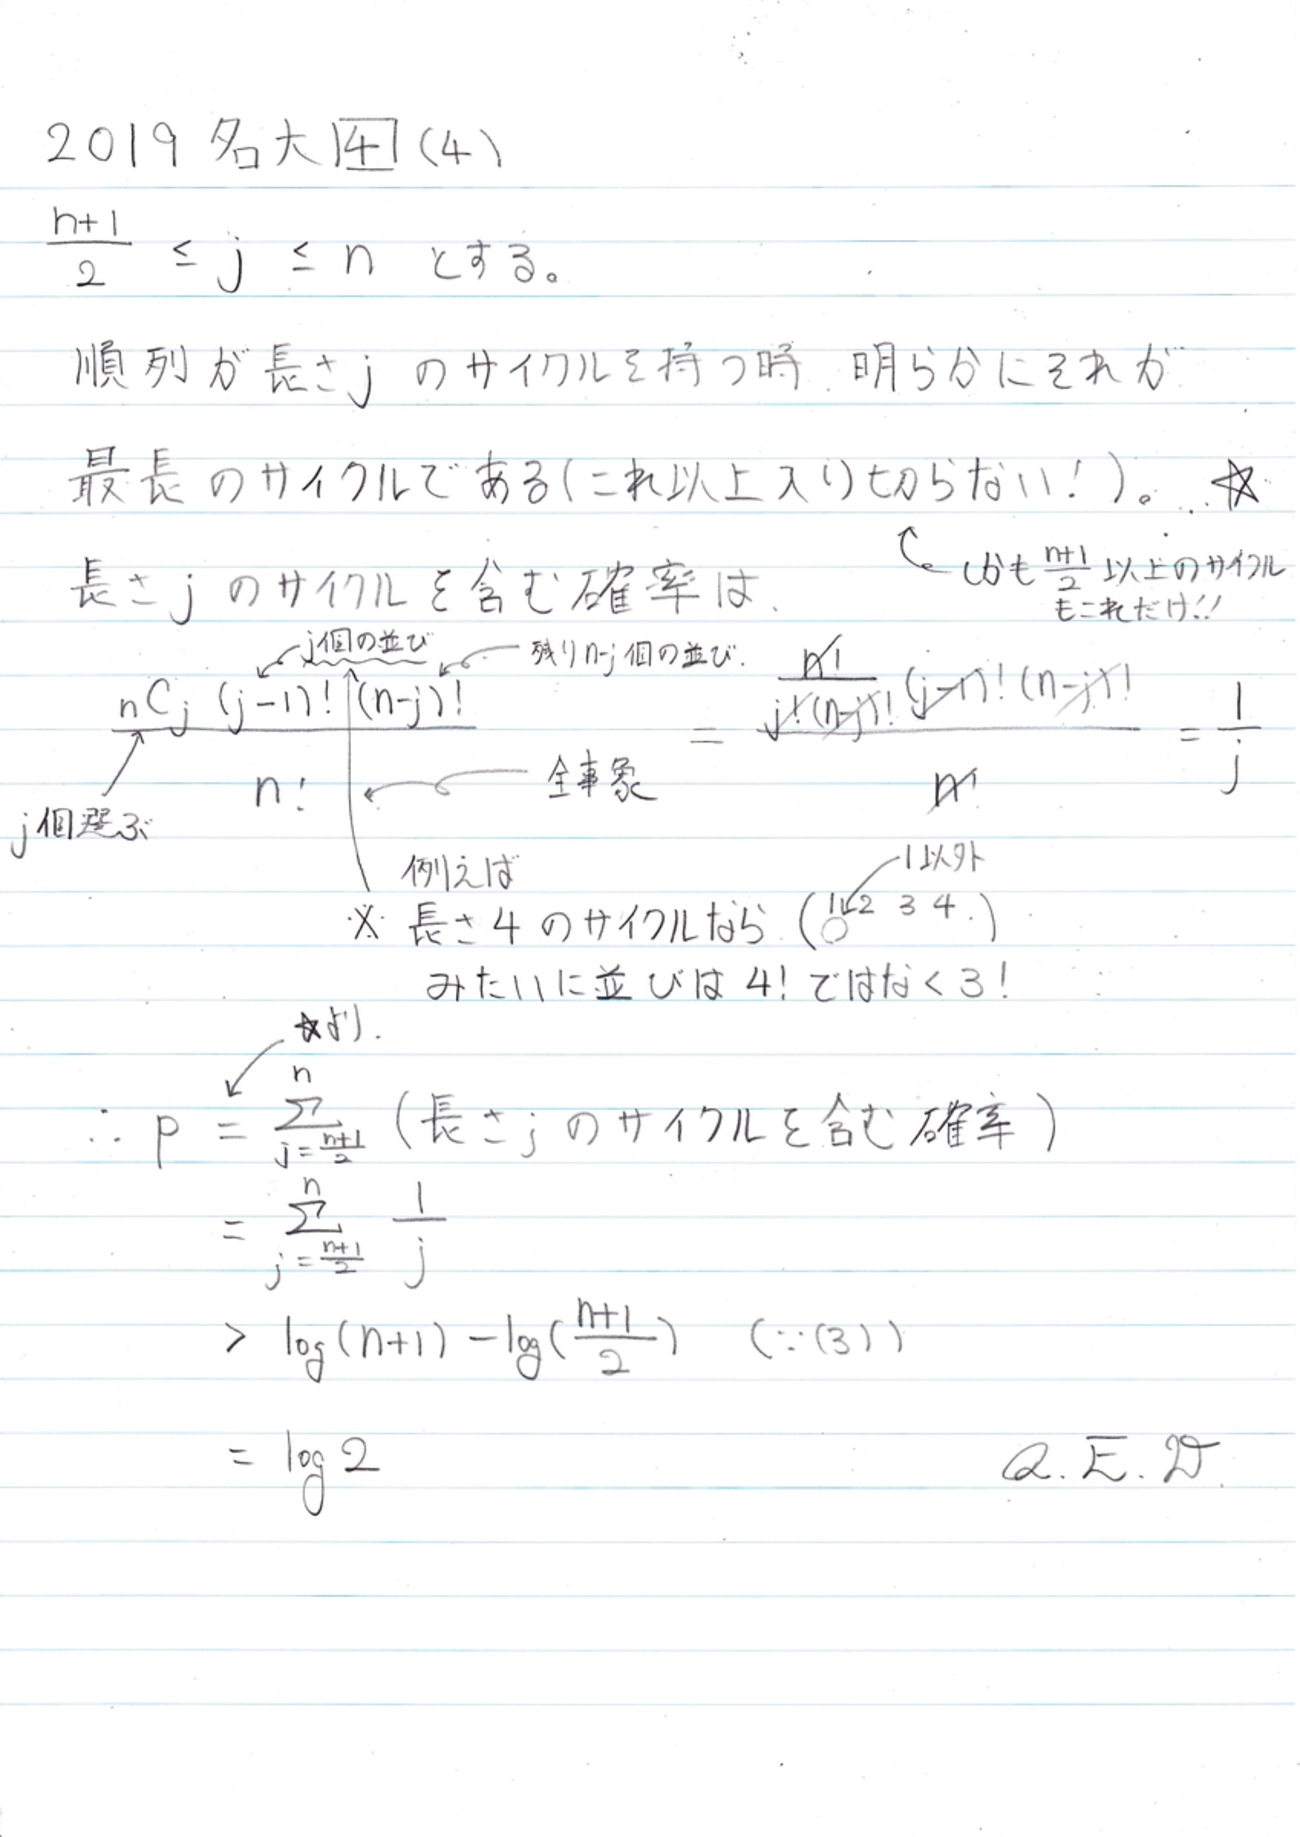 2019 名大 4 (4)
n+1/2 ≤ j ≤ n とする。
順列が長さjのサイクルを持つ時、明らかにそれが
最長のサイクルである(これ以上入り切らない!)。…☆
しかも n+1/2 以上のサイクル
もこれだけ!!
長さjのサイクルを含む確率は、
j個の並び 残りn-j個の並び.
nCj (j-1)! (n-j)! / n! = n!/j!(n-j)! (j-1)! (n-j)! / n! = 1/j
全事象
j個選ぶ
例えば 1以外
※ 長さ4のサイクルなら (1 2 3 4 )
みたいに並びは4!ではなく3!
☆より.
∴ p = Σ_{j=n+1/2}^{n} (長さjのサイクルを含む確率)
= Σ_{j=n+1/2}^{n} 1/j
> log(n+1) - log(n+1/2) (∵(3))
= log2 Q.E.D.